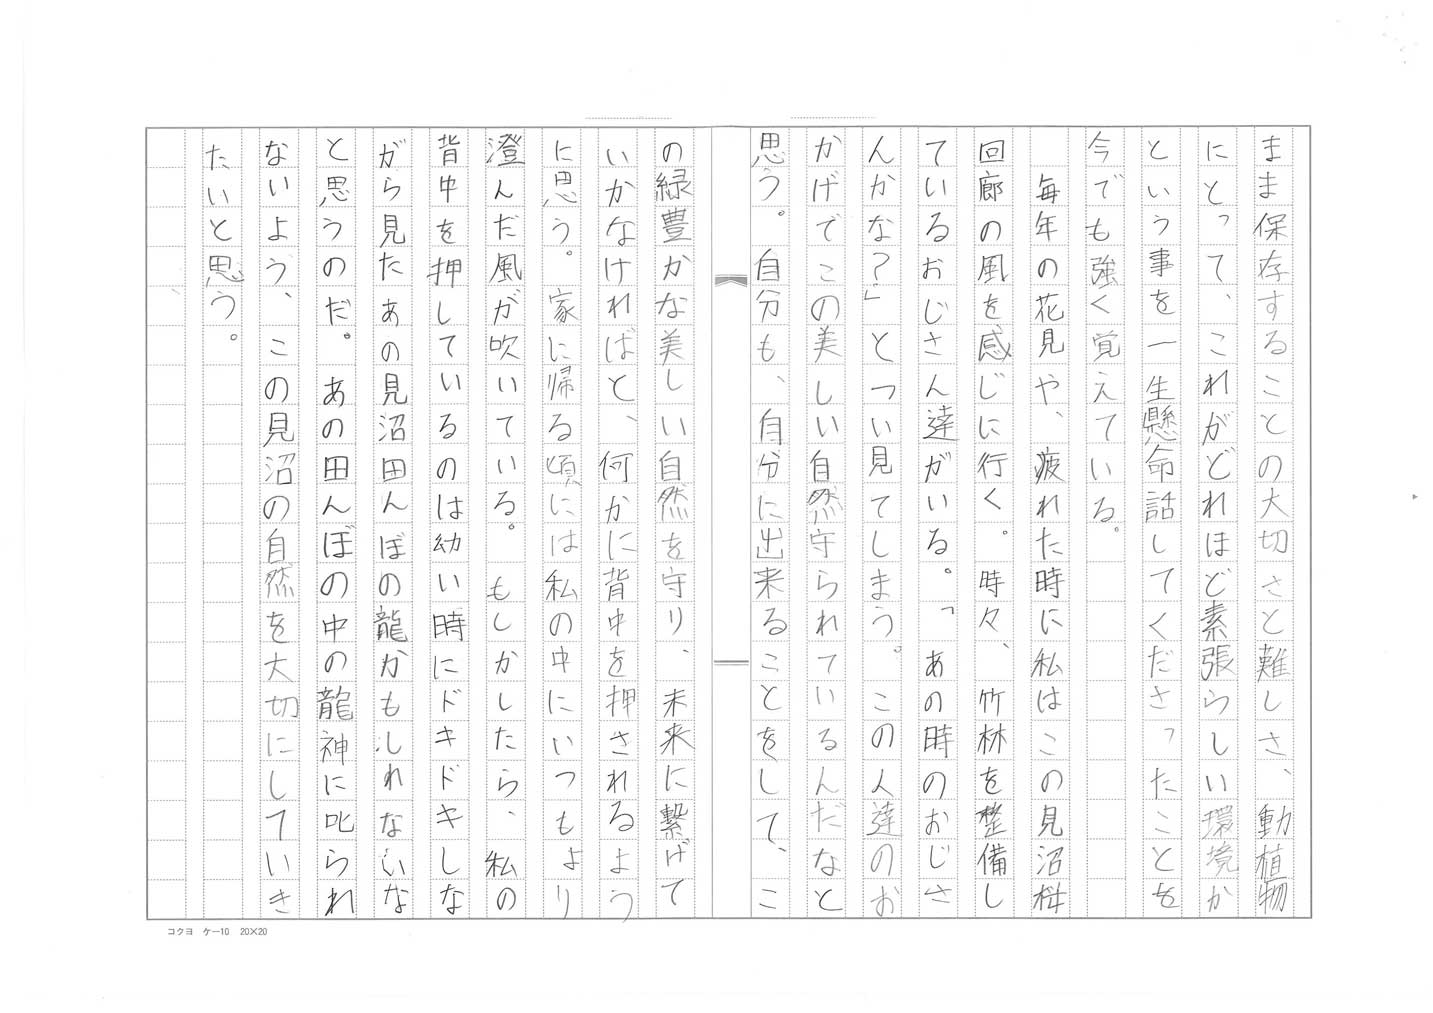 まま保存することの大切さと難しさ、動植物
にとって、これがどれほど素張らしい環境か
という事を一生懸命話してくださったことを
今でも強く覚えている。
毎年の花見や、疲れた時に私はこの見沼桜
回廊の風を感じに行く。時々、竹林を整備し
ているおじさん達がいる。「あの時のおじさ
んかな？」とつい見てしまう。この人達のお
かげでこの美しい自然守られているんだなと
思う。自分も、自分に出来ることをして、こ
の緑豊かな美しい自然を守り、未来に繋げて
いかなければと、何かに背中を押されるよう
に思う。家に帰る頃には私の中にいつもより
澄んだ風が吹いている。もしかしたら、私の
背中を押しているのは幼い時にドキドキしな
がら見たあの見沼田んぼの龍かもしれないな
と思うのだ。あの田んぼの中の龍神に叱られ
ないよう、この見沼の自然を大切にしていき
たいと思う。
コクヨ ケー10 20×20